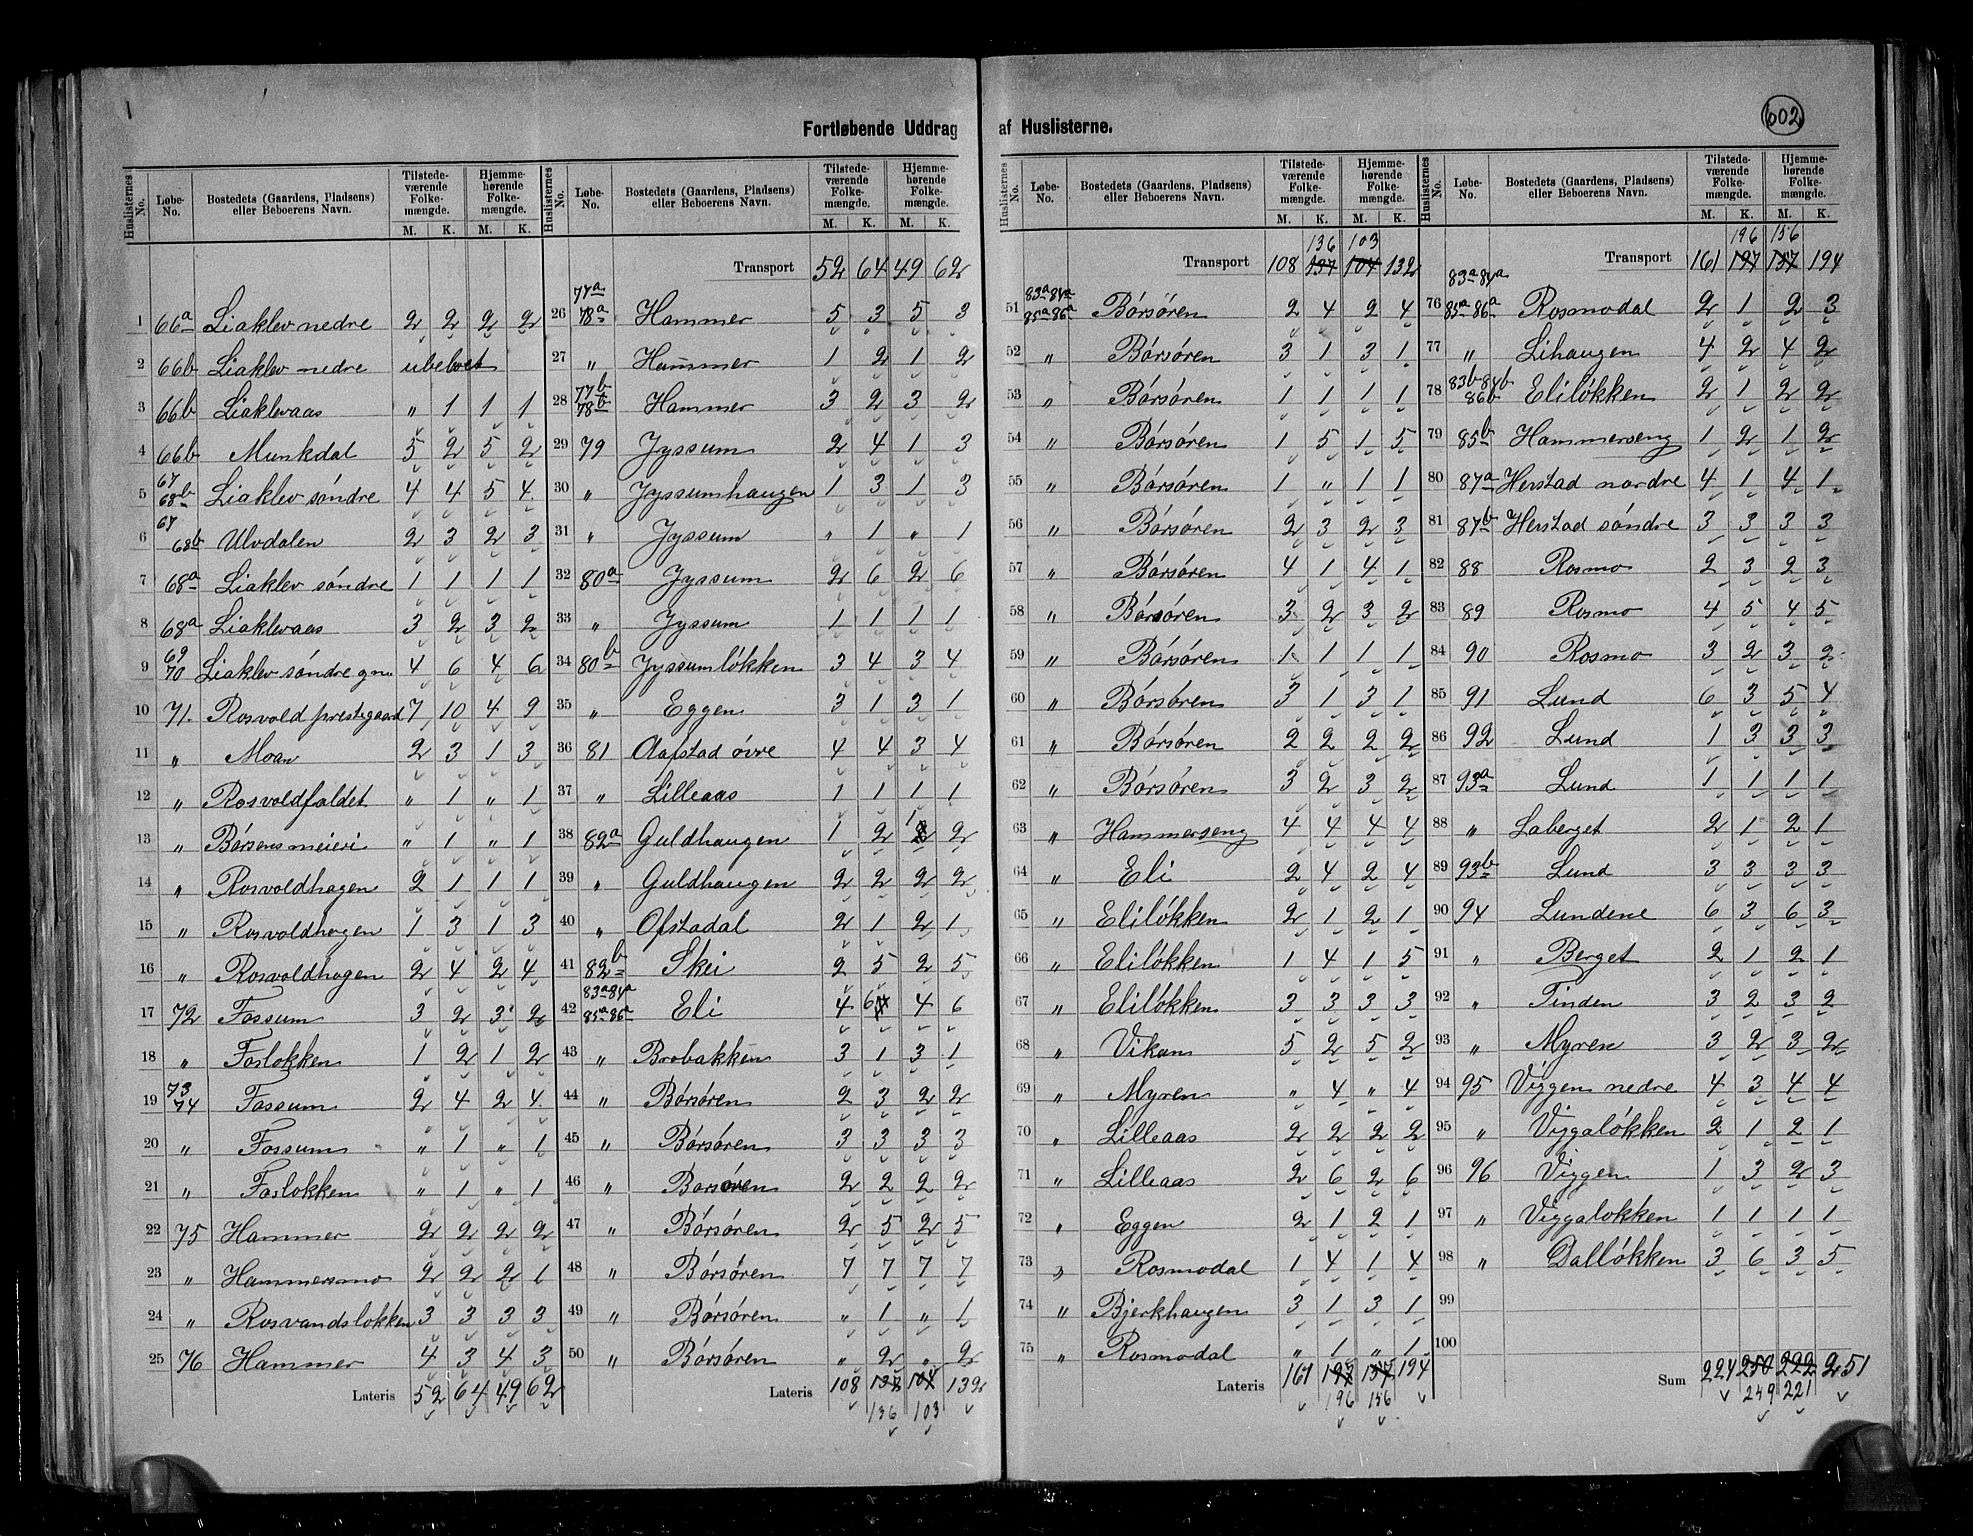 602
Fortløbende Uddrag af Huslisterne.
Huslisternes No. | Løbe-No. | Bostedets (Gaardens, Pladsens) eller Beboerens Navn. | Tilstedeværende Folkemængde. M. K. | Hjemmehørende Folkemængde. M. K.
1 66a Liaklev nedre 2 2 2 2
2 66b Liaklev nedre ubeboet
3 66b Liaklevaas " 1 1 1
4 66b Munkdal 5 2 5 2
5 67 68b Liaklev søndre 4 4 5 4
6 67 68b Ulvdalen 2 3 2 3
7 68a Liaklev søndre 1 1 1 1
8 68a Liaklevaas 3 2 3 2
9 69 70 Liaklev søndre gn. 4 6 4 6
10 71. Rosvold prestegaard 7 10 4 9
11 " Moan 2 3 1 3
12 " Rosvoldfaldet " 1 " 1
13 " Børsens meieri " 1 " 1
14 " Rosvoldhagen 2 1 1 1
15 " Rosvoldhagen 1 3 1 3
16 " Rosvoldhagen 2 4 2 4
17 72 Fossum 3 2 3 2
18 " Foslokken 1 2 1 2
19 73 74 Fossum 2 4 2 4
20 " Fossum " 1 " 1
21 " Foslokken " 1 " 1
22 75 Hammer 2 2 2 2
23 " Hammersmo 2 2 2 1
24 " Rosvandslokken 3 3 3 3
25 76 Hammer 4 3 4 3
Lateris 52 64 49 62
Huslisternes No. | Løbe-No. | Bostedets (Gaardens, Pladsens) eller Beboerens Navn. | Tilstedeværende Folkemængde. M. K. | Hjemmehørende Folkemængde. M. K.
Transport 52 64 49 62
26 77a 78a Hammer 5 3 5 3
27 " Hammer 1 2 1 2
28 77b 78b Hammer 3 2 3 2
29 79 Jyssum 2 4 1 3
30 " Jyssumhaugen 1 3 1 3
31 " Jyssum " 1 " 1
32 80a Jyssum 2 6 2 6
33 " Jyssum 1 1 1 1
34 80b Jyssumløkken 3 4 3 4
35 " Eggen 3 1 3 1
36 81 Oafstad øvre 4 4 3 4
37 " Lilleaas 1 1 1 1
38 82a Guldhaugen 1 2 1 2
39 " Guldhaugen 2 2 2 2
40 " Ofstadal 2 1 2 1
41 82b Skei 2 5 2 5
42 83a 84a 85a 86a Eli 4 6 4 6
43 " Brobakken 3 1 3 1
44 " Børsøren 2 3 2 2
45 " Børsøren 3 3 3 3
46 " Børsøren 2 2 2 2
47 " Børsøren 2 5 2 5
48 " Børsøren 7 7 7 7
49 " Børsøren " 1 " 1
50 " Børsøren " 2 " 2
Lateris 108 137 104 132
136 103
Huslisternes No. | Løbe-No. | Bostedets (Gaardens, Pladsens) eller Beboerens Navn. | Tilstedeværende Folkemængde. M. K. | Hjemmehørende Folkemængde. M. K.
136 103
Transport 108 137 104 132
51 83a 84a 85a 86a Børsøren 2 4 2 4
52 " Børsøren 3 1 3 1
53 " Børsøren 1 1 1 1
54 " Børsøren 1 5 1 5
55 " Børsøren 1 " 1 1
56 " Børsøren 2 3 2 3
57 " Børsøren 4 1 4 1
58 " Børsøren 3 2 3 2
59 " Børsøren 1 1 1 1
60 " Børsøren 3 1 3 1
61 " Børsøren 2 2 2 2
62 " Børsøren 3 2 3 2
63 " Hammerseng 4 4 4 4
64 " Eli 2 4 2 4
65 " Eliløkken 2 1 2 1
66 " Eliløkken 1 4 1 5
67 " Eliløkken 3 3 3 3
68 " Vikan 5 2 5 2
69 " Myren " 4 " 4
70 " Lilleaas 2 2 2 2
71 " Lilleaas 2 6 2 6
72 " Eggen 2 1 2 1
73 " Rosmodal 1 4 1 4
74 " Bjerkhaugen 3 1 3 1
75 " Rosmodal " 1 " 1
Lateris 161 197 157 194
196 156
Huslisternes No. | Løbe-No. | Bostedets (Gaardens, Pladsens) eller Beboerens Navn. | Tilstedeværende Folkemængde. M. K. | Hjemmehørende Folkemængde. M. K.
196 156
Transport 161 197 157 194
76 83a 84a 85a 86a Rosmodal 2 1 2 3
77 " Lihaugen 4 2 4 2
78 83b 84b 86b Eliløkken 2 1 2 2
79 85b Hammerseng 1 2 1 2
80 87a Herstad nordre 4 1 4 1
81 87b Herstad søndre 3 3 3 3
82 88 Rosmo 2 3 2 3
83 89 Rosmo 4 5 4 5
84 90 Rosmo 3 2 3 2
85 91 Lund 6 3 5 4
86 92 Lund 1 3 3 3
87 93a Lund 1 1 1 1
88 " Laberget 2 1 2 1
89 93b Lund 3 3 3 3
90 94 Lundene 6 3 6 3
91 " Berget 2 1 2 1
92 " Tinden 3 2 3 2
93 " Myren 3 2 3 2
94 95 Viggen nedre 4 3 4 4
95 " Viggaløkken 2 1 2 1
96 96 Viggen 1 3 2 3
97 " Viggaløkken 1 1 1 1
98 " Dalløkken 3 6 3 5
99
100
Sum 224 250 222 251
249 221